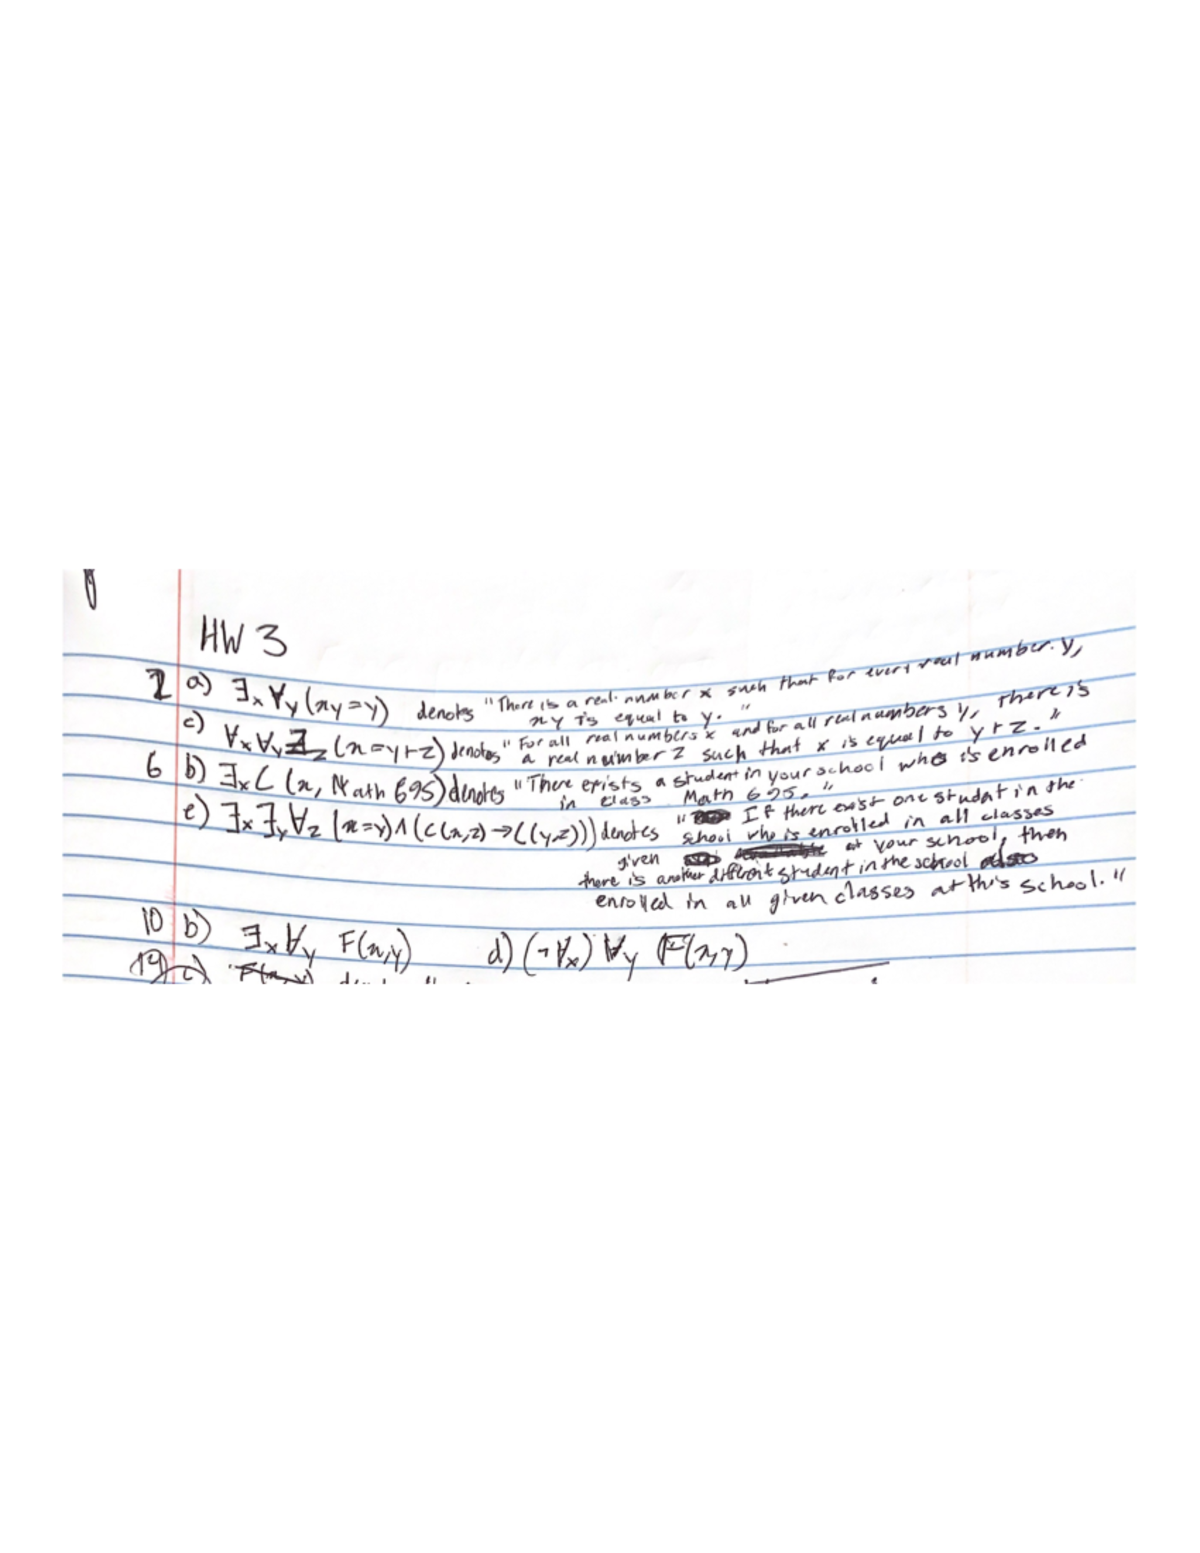 HW 3
2 a) ∃x ∀y (xy=y) denotes "There is a real number x such that for every real number y,
xy is equal to y."
c) ∀x ∀y ∃z (x=y+z) denotes "For all real numbers x and for all real numbers y, there is
a real number z such that x is equal to y+z."
6 b) ∃x C (x, Math 695) denotes "There exists a student in your school who is enrolled
in class Math 695."
e) ∃x ∃y ∀z (x=y) ∧ (C(x,z) → C(y,z))) denotes " If there exist one student in the
school who is enrolled in all classes
given at your school, then
there is another different student in the school also
enrolled in all given classes at this school."
10 b) ∃x ∀y F(x,y) d) (¬∀x) ∀y F(x,y)
19 c) F(x,y)